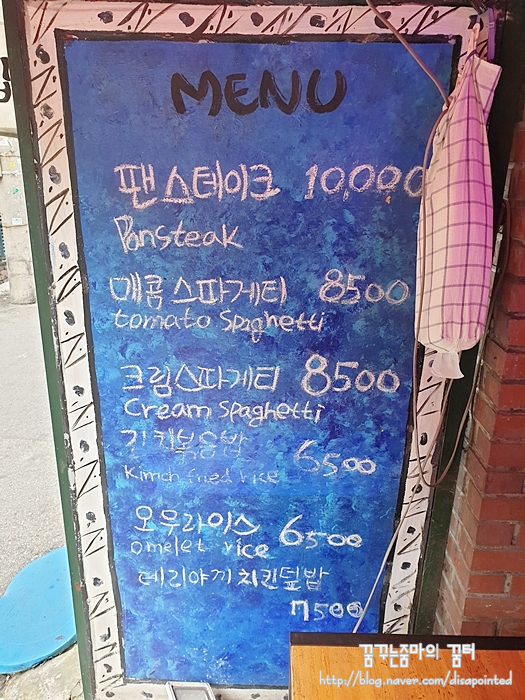 MENU
팬스테이크 10,000
Pansteak
매콤스파게티 8500
tomato Spaghetti
크림스파게티 8500
Cream Spaghetti
김치볶음밥 6500
Kimch fried rice
오무라이스 6500
omelet rice
테리야끼치킨덮밥
7500
꿈꾸는줌마의 꿈터
http://blog.naver.com/disapointed